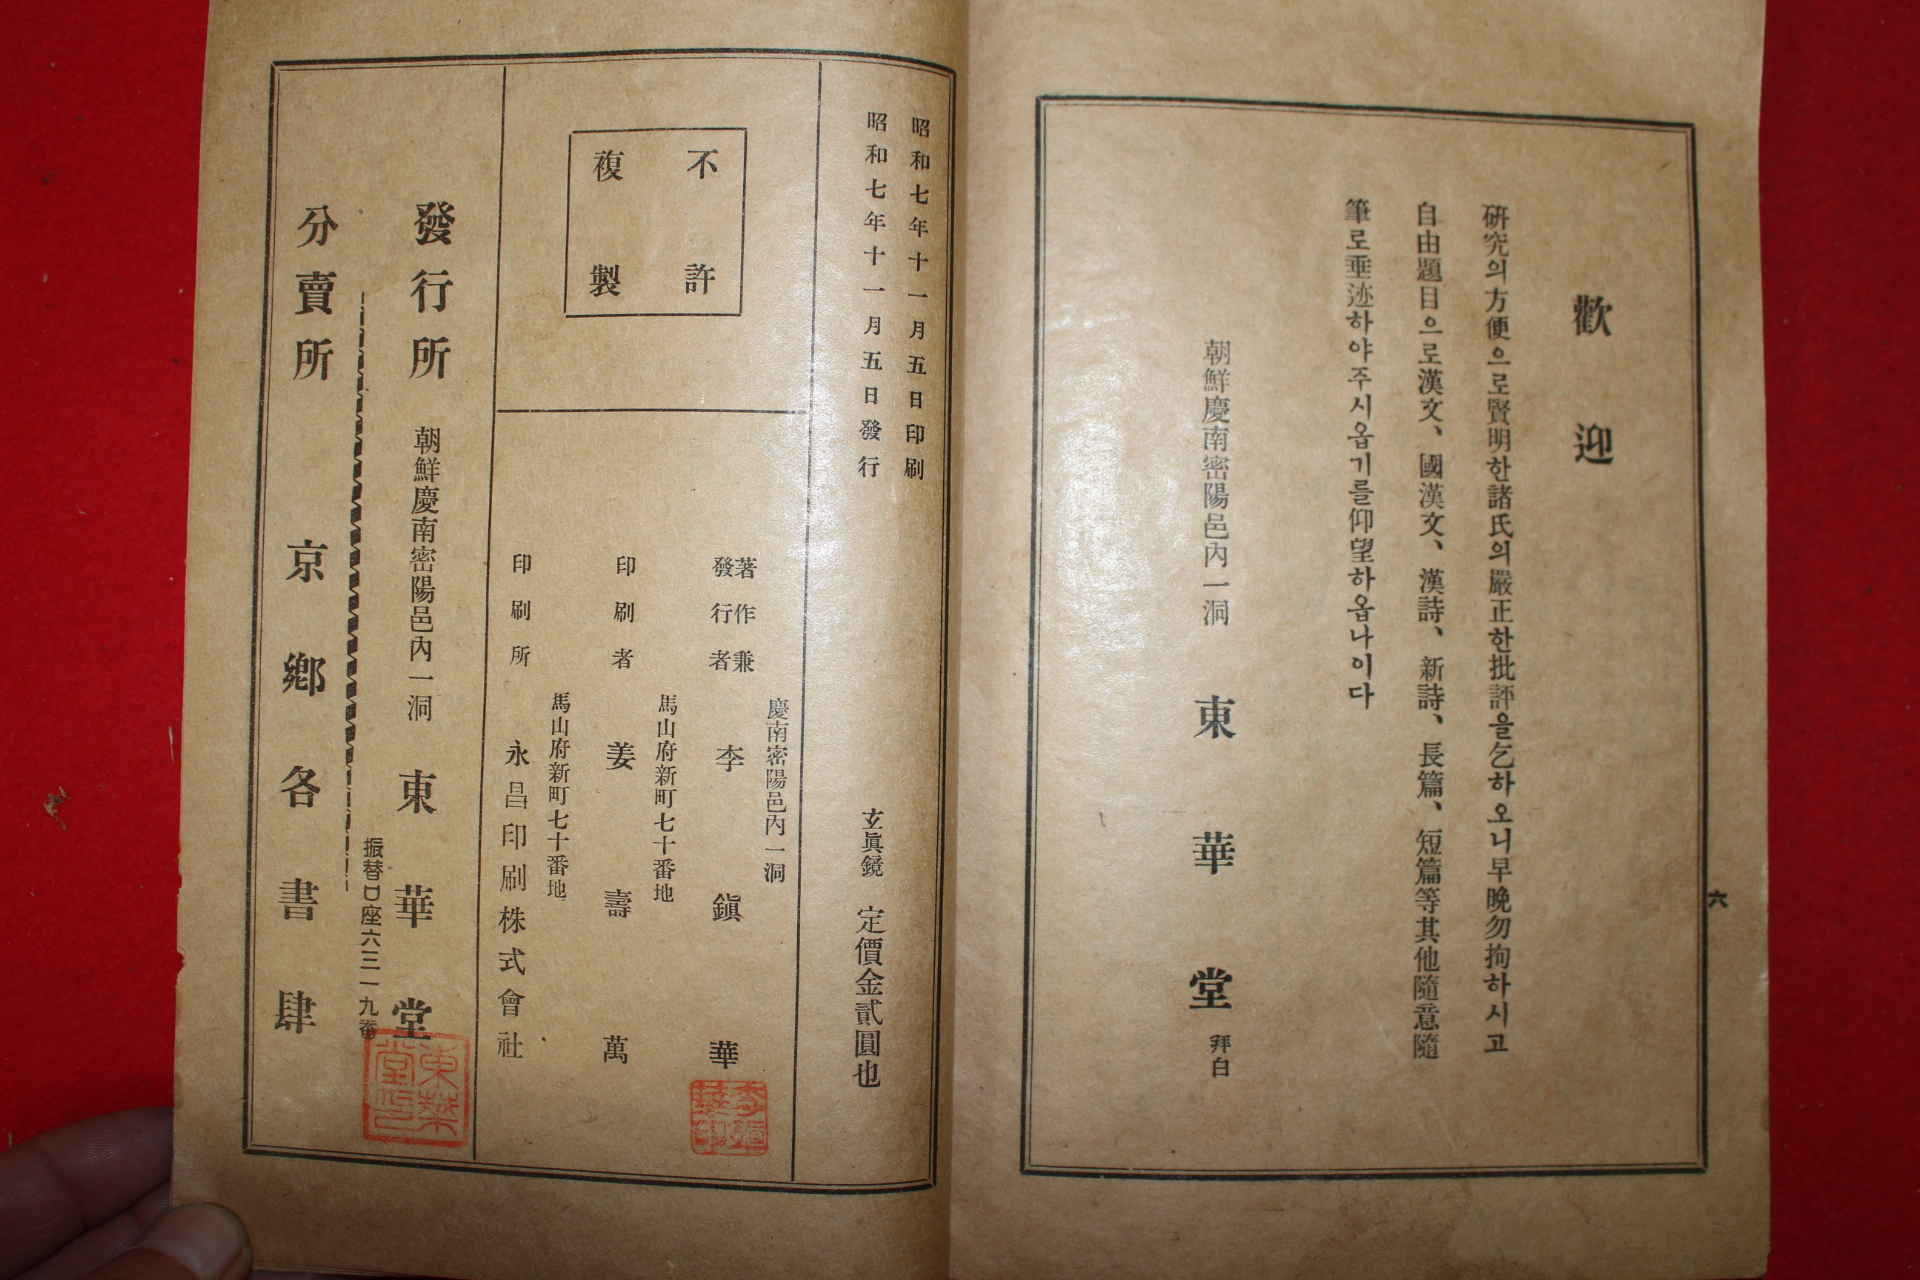 歡迎
研究의方便으로賢明한諸氏의嚴正한批評을乞하오니早晩勿拘하시고
自由題目으로漢文、國漢文、漢詩、新詩、長篇、短篇等其他隨意隨
筆로垂迹하야주시옵기를仰望하옵나이다
朝鮮慶南密陽邑內一洞
東華堂 拜白
六
昭和七年十一月五日印刷
昭和七年十一月五日發行
玄眞鏡 定價金貳圓也
不許
複製
慶南密陽邑內一洞
著作兼
發行者 李鎭華
馬山府新町七十番地
印刷者 姜壽萬
馬山府新町七十番地
印刷所 永昌印刷株式會社
發行所 朝鮮慶南密陽邑內一洞 東華堂
振替口座六三一九番
分賣所 京鄕各書肆
東華
堂印